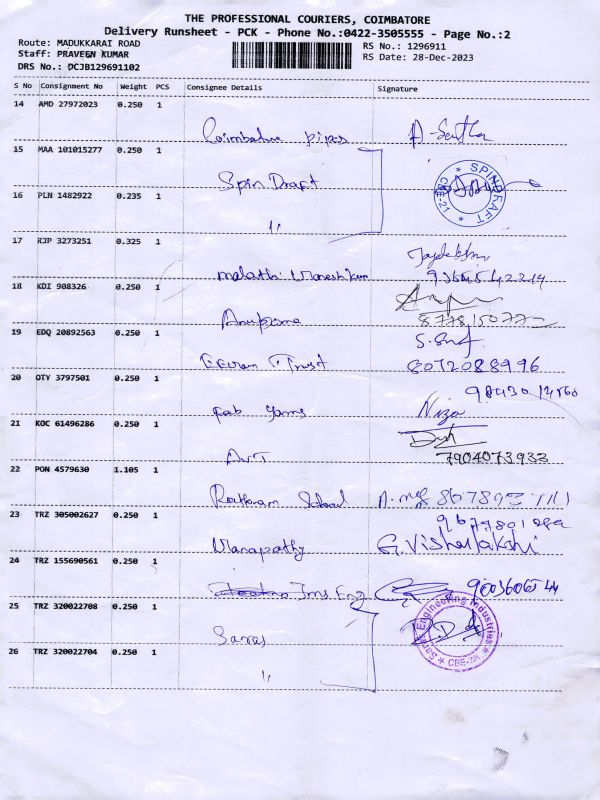 THE PROFESSIONAL COURIERS, COIMBATORE
Delivery Runsheet - PCK - Phone No.:0422-3505555 - Page No.:2
Route: MADUKKARAI ROAD
RS No.: 1296911
Staff: PRAVEEN KUMAR
RS Date: 28-Dec-2023
DRS No.: DCJB129691102
S No Consignment No Weight PCS Consignee Details Signature
14 AMD 27972023 0.250 1
Coimbatore pipes A-Senthil
15 MAA 101015277 0.250 1
Spin Draft
SPINDRAFT CBE-21
16 PLN 1482922 0.235 1
〃
17 RJP 3273251 0.325 1
Malathi Maneshkumar
18 KDI 908326 0.250 1
Anupama
19 EDQ 20892563 0.250 1
Trust 8072088996
20 OTY 3797501 0.250 1
Fab Yarns Niza
21 KOC 61496286 0.250 1
AVT 7904073933
22 PON 4579630 1.105 1
School
23 TRZ 305002627 0.250 1
Manapathy G. Vishalakshi
24 TRZ 155690561 0.250 1
Jms Eng
25 TRZ 320022708 0.250 1
Saras
Saras Engineering Industries
26 TRZ 320022704 0.250 1
〃